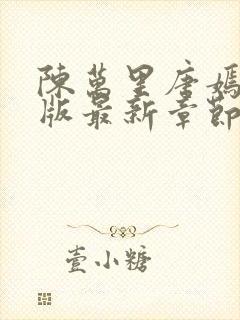 陳萬里唐嫣
版最新章節
壹小糖